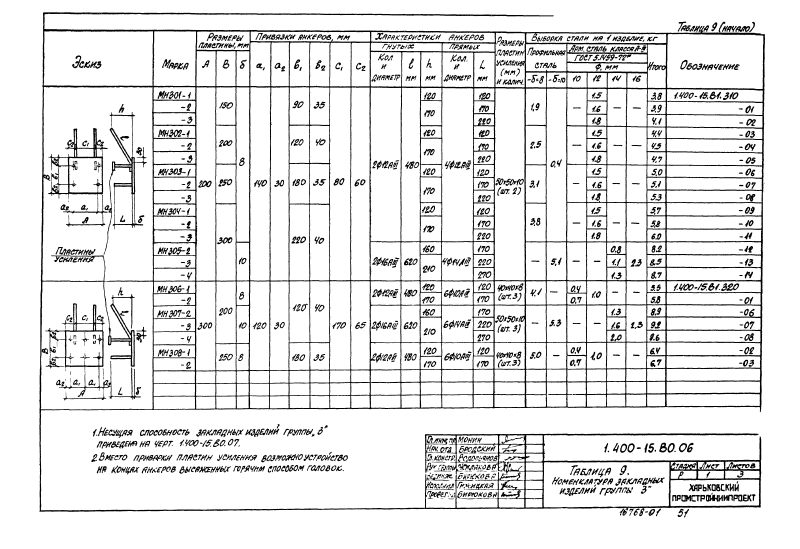 Таблица 9 (начало)
Эскиз
Марка
Размеры пластины, мм
А В δ
Привязки анкеров, мм
а₁ а₂ в₁ в₂ с₁ с₂
Характеристики анкеров
гнутых прямых
Кол. и диаметр
l мм
h мм
Кол. и диаметр
L мм
Размеры пластин усиления (мм) и колич.
Выборка стали на 1 изделие, кг
Профильная сталь
-δ=8 -δ=10
Арм. сталь класса А-II
ГОСТ 5.1459-72*
Ф, мм
10 12 14 16
Итого
Обозначение
МН301-1 120 120 1.5 3.8 1.400-15.В1.310
-2 150 90 35 170 170 1,9 1.6 3.9 -01
-3 220 1.8 4.1 -02
МН302-1 120 120 1.5 4.4 -03
-2 200 120 40 170 170 2.5 1.6 4.5 -04
-3 8 2Ф12АII 480 4Ф12АII 220 0,4 1.8 4.7 -05
МН303-1 120 120 50×50×10 1.5 5.0 -06
-2 200 250 140 30 180 35 80 60 170 170 (шт. 2) 3,1 1.6 5.1 -07
-3 220 1.8 5.3 -08
МН304-1 120 120 1.5 5.7 -09
-2 170 170 3,8 1.6 5.8 -10
-3 300 220 40 220 1.8 6.0 -11
МН305-2 160 170 0.8 8.2 -12
-3 10 2Ф16АII 620 210 4Ф14АII 220 5,1 1.1 2,3 8.5 -13
-4 270 1.3 8.7 -14
МН306-1 8 2Ф12АII 480 120 6Ф10АII 120 40×40×8 4.1 0.4 1.0 5.5 1.400-15.В1.320
-2 170 170 (шт.3) 0.7 5.8 -01
МН307-2 200 120 40 160 170 50×50×10 1.3 8.9 -06
-3 300 10 120 30 170 65 2Ф16АII 620 210 6Ф14АII 220 (шт. 3) 5.3 1.6 2,3 9.2 -07
-4 270 2,0 -08
МН308-1 250 8 180 35 2Ф12АII 480 120 6Ф10АII 120 40×40×8 5.0 0.4 1,0 6.4 -02
-2 170 170 (шт.3) 0.7 6.7 -03
Пластины усиления
1. Несущая способность закладных изделий группы „Б"
приведена на черт. 1.400-15.В0.07.
2. Вместо приварки пластин усиления возможно устройство
на концах анкеров высаженных горячим способом головок.
Монин
Нач. отд. Бродский
1.400-15.В0.06
Таблица 9.
Номенклатура закладных
изделий группы „Б"
Стадия Лист Листов
Р 1 3
Харьковский
Промстройниипроект
16768-01 51